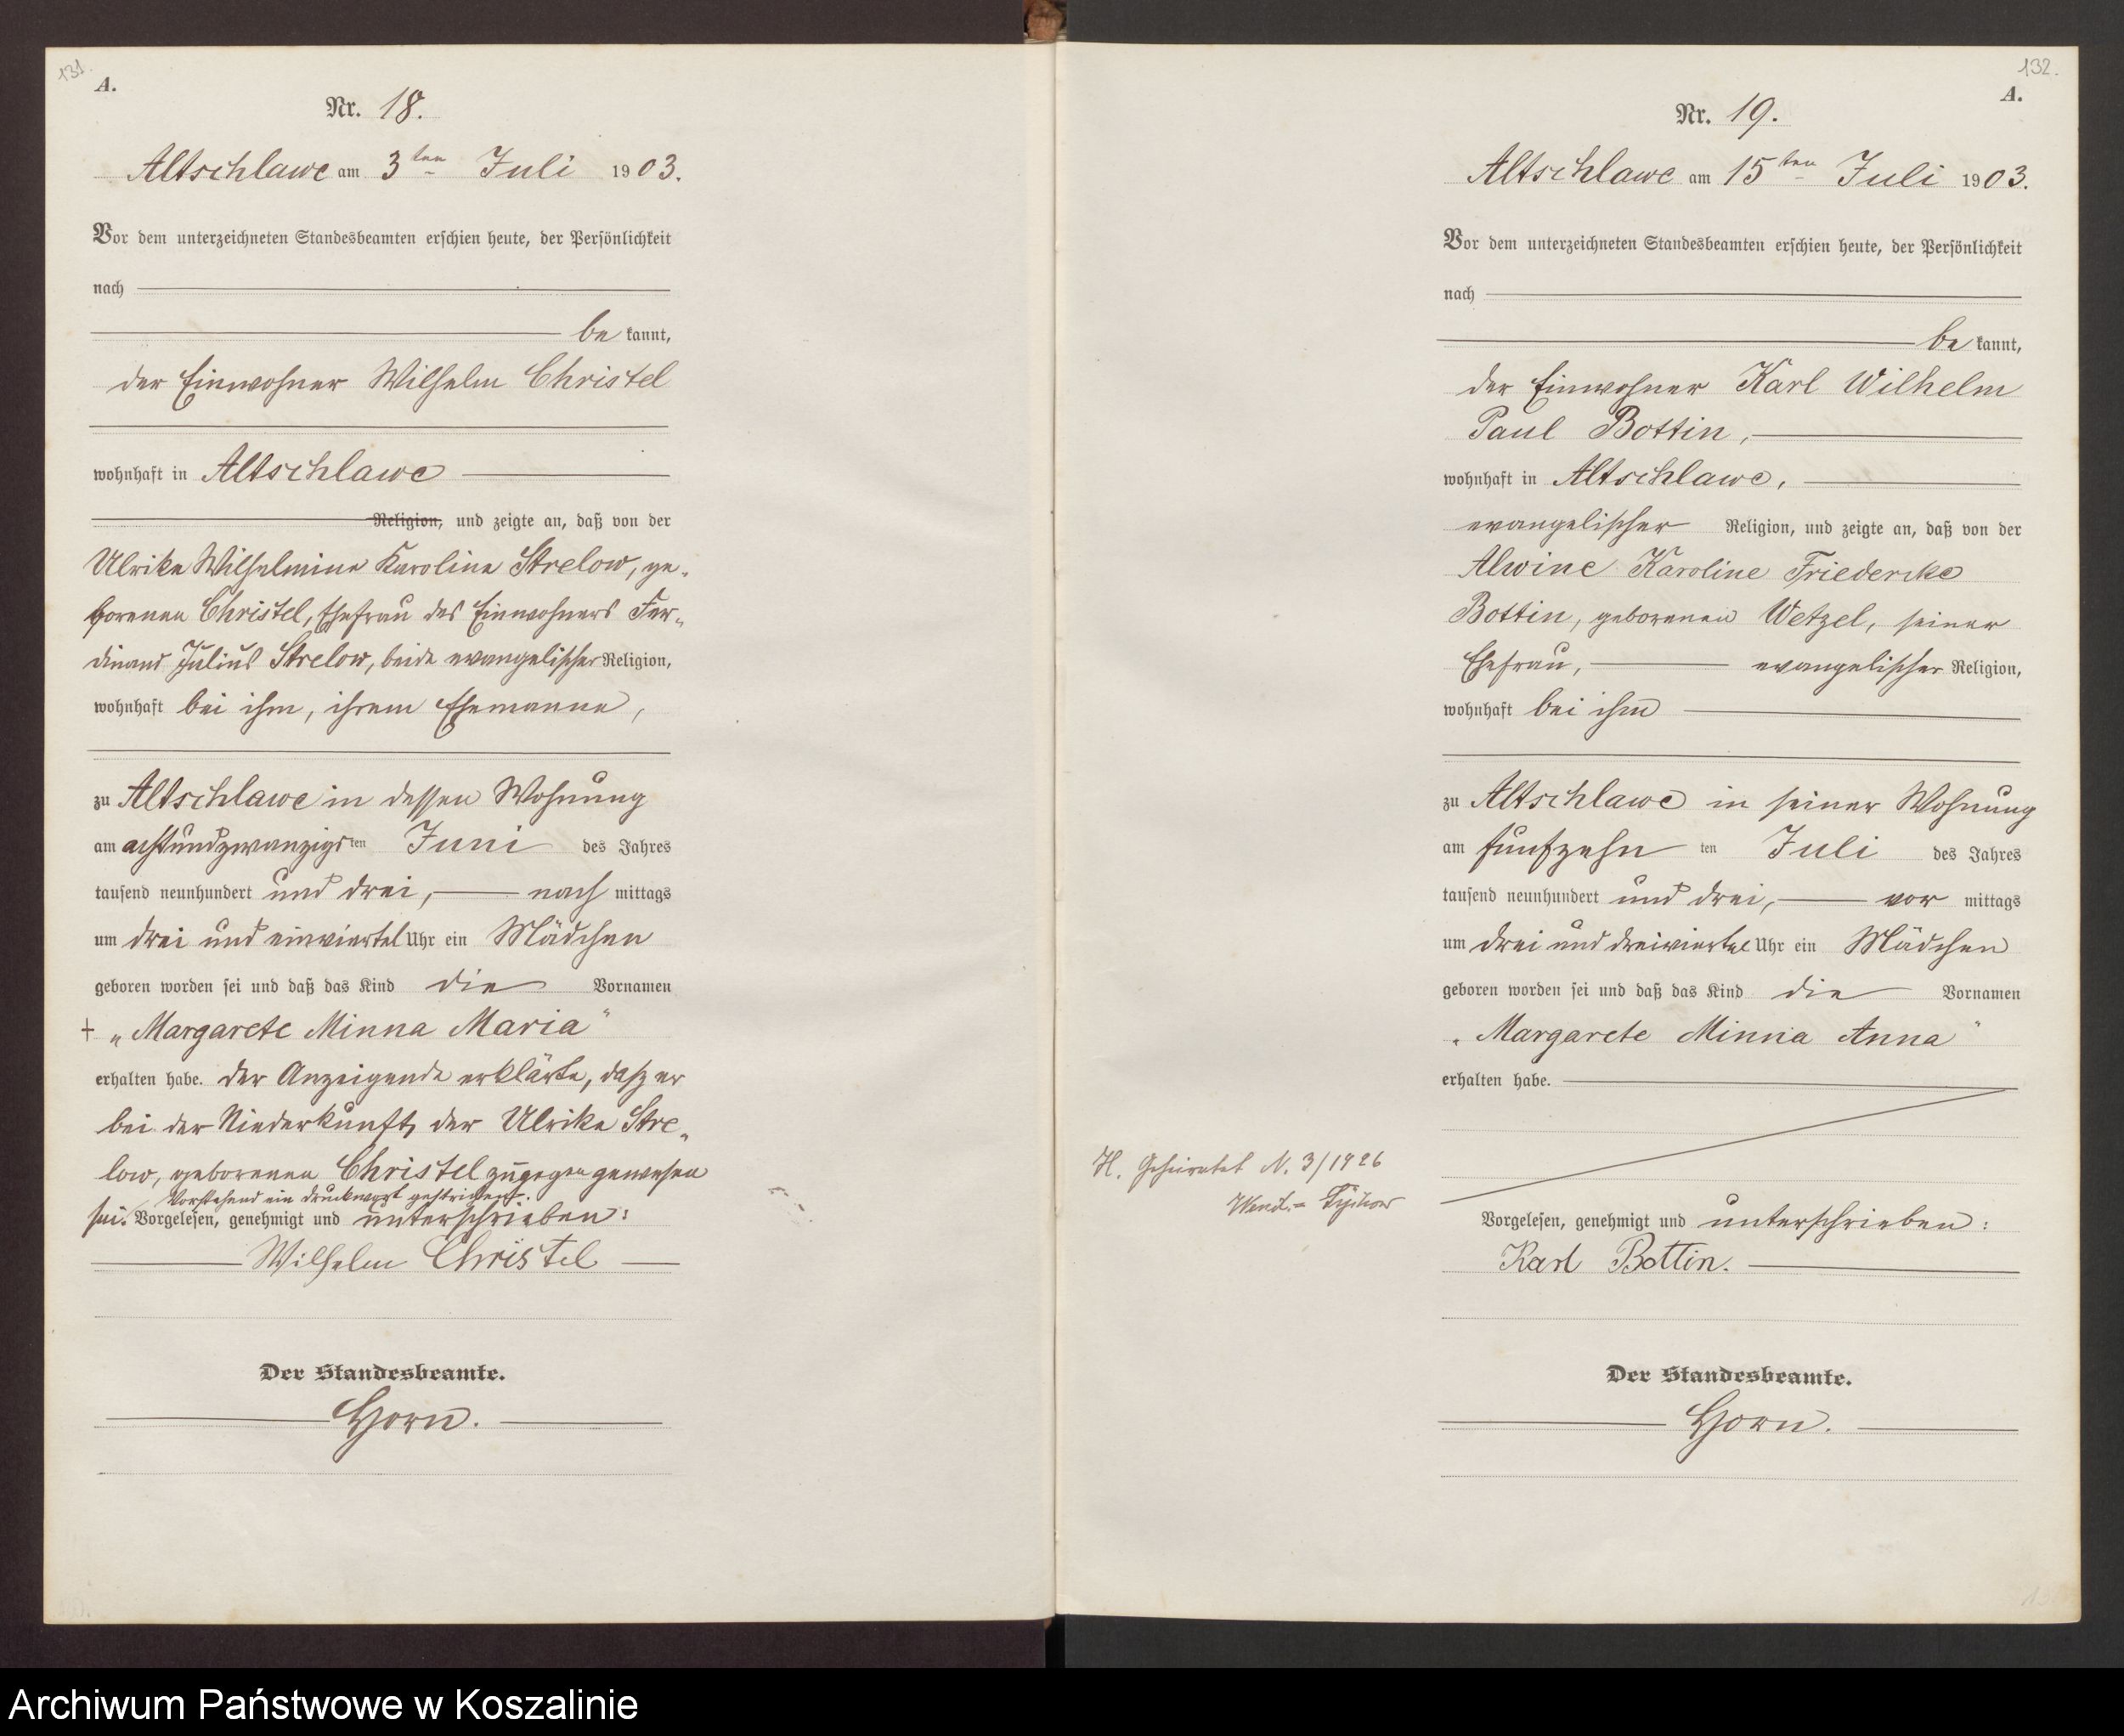 131.
A.
Nr. 18.
Altschlawe am 3ten Juli 1903.
Vor dem unterzeichneten Standesbeamten erschien heute, der Persönlichkeit
nach
be kannt,
der Einwohner Wilhelm Christel
wohnhaft in Altschlawe
Religion, und zeigte an, daß von der
Ulrike Wilhelmine Karoline Strelow, ge-
borenen Christel, Ehefrau des Einwohners Fer-
dinand Julius Strelow, beide evangelischer Religion,
wohnhaft bei ihm, ihrem Ehemanne,
zu Altschlawe in dessen Wohnung
am achtundzwanzigsten Juni des Jahres
tausend neunhundert und drei, nach mittags
um drei und einviertel Uhr ein Mädchen
geboren worden sei und daß das Kind die Vornamen
+ „Margarete Minna Maria“
erhalten habe. Der Anzeigende erklärte, daß er
bei der Niederkunft der Ulrike Stre-
low, geborenen Christel zugegen gewesen
Vorstehend ein Druckwort gestrichen.
sei. Vorgelesen, genehmigt und unterschrieben:
Wilhelm Christel
Der Standesbeamte.
Horn.
132.
A.
Nr. 19.
Altschlawe am 15ten Juli 1903.
Vor dem unterzeichneten Standesbeamten erschien heute, der Persönlichkeit
nach
be kannt,
der Einwohner Karl Wilhelm
Paul Bottin,
wohnhaft in Altschlawe,
evangelischer Religion, und zeigte an, daß von der
Alwine Karoline Friedericke
Bottin, geborenen Wetzel, seiner
Ehefrau, evangelischer Religion,
wohnhaft bei ihm
zu Altschlawe in seiner Wohnung
am fünfzehn ten Juli des Jahres
tausend neunhundert und drei, vor mittags
um drei und dreiviertel Uhr ein Mädchen
geboren worden sei und daß das Kind die Vornamen
„Margarete Minna Anna“
erhalten habe.
H. Geheiratet N. 3/1926
Vorgelesen, genehmigt und unterschrieben:
Karl Bottin.
Der Standesbeamte.
Horn.
Archiwum Państwowe w Koszalinie